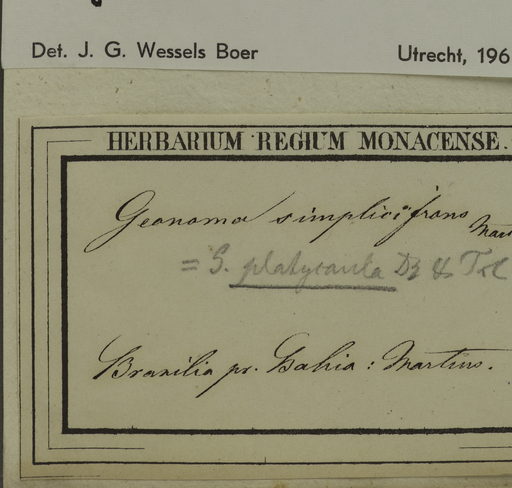 Det. J. G. Wessels Boer
Utrecht, 196
HERBARIUM REGIUM MONACENSE.
Geonoma simplicifrons
Mart
= G. platycaula Dr & Trl
Brasilia pr. Bahia: Martius.